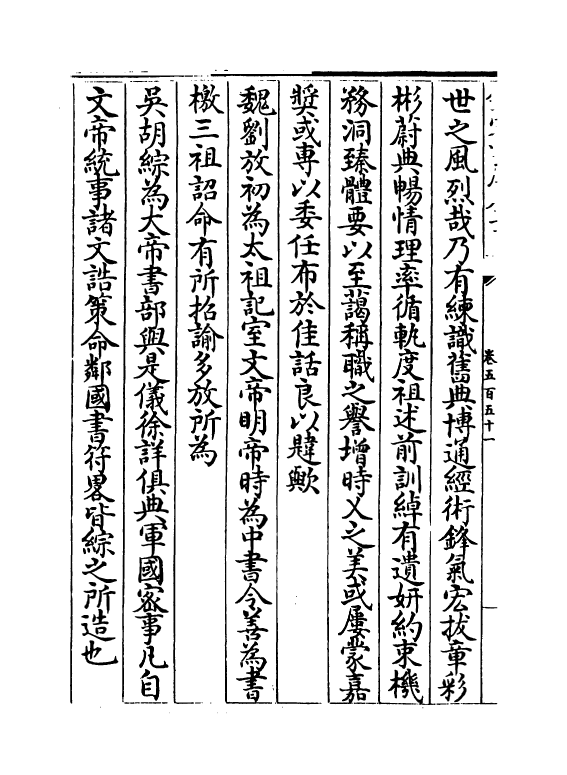 卷五百五十一
世之風烈哉乃有練識舊典博通經術鋒氣宏拔章彩
彬蔚典暢情理率循軌度祖述前訓綽有遺妍約束機
務洞臻體要以至藹稱職之譽增時乂之美或屢蒙嘉
奬或專以委任布於佳話良以韙歟
魏劉放初為太祖記室文帝明帝時為中書令善為書
檄三祖詔命有所招諭多放所為
吳胡綜為大帝書部與是儀徐詳俱典軍國宻事凡自
文帝統事諸文誥策命鄰國書符畧皆綜之所造也